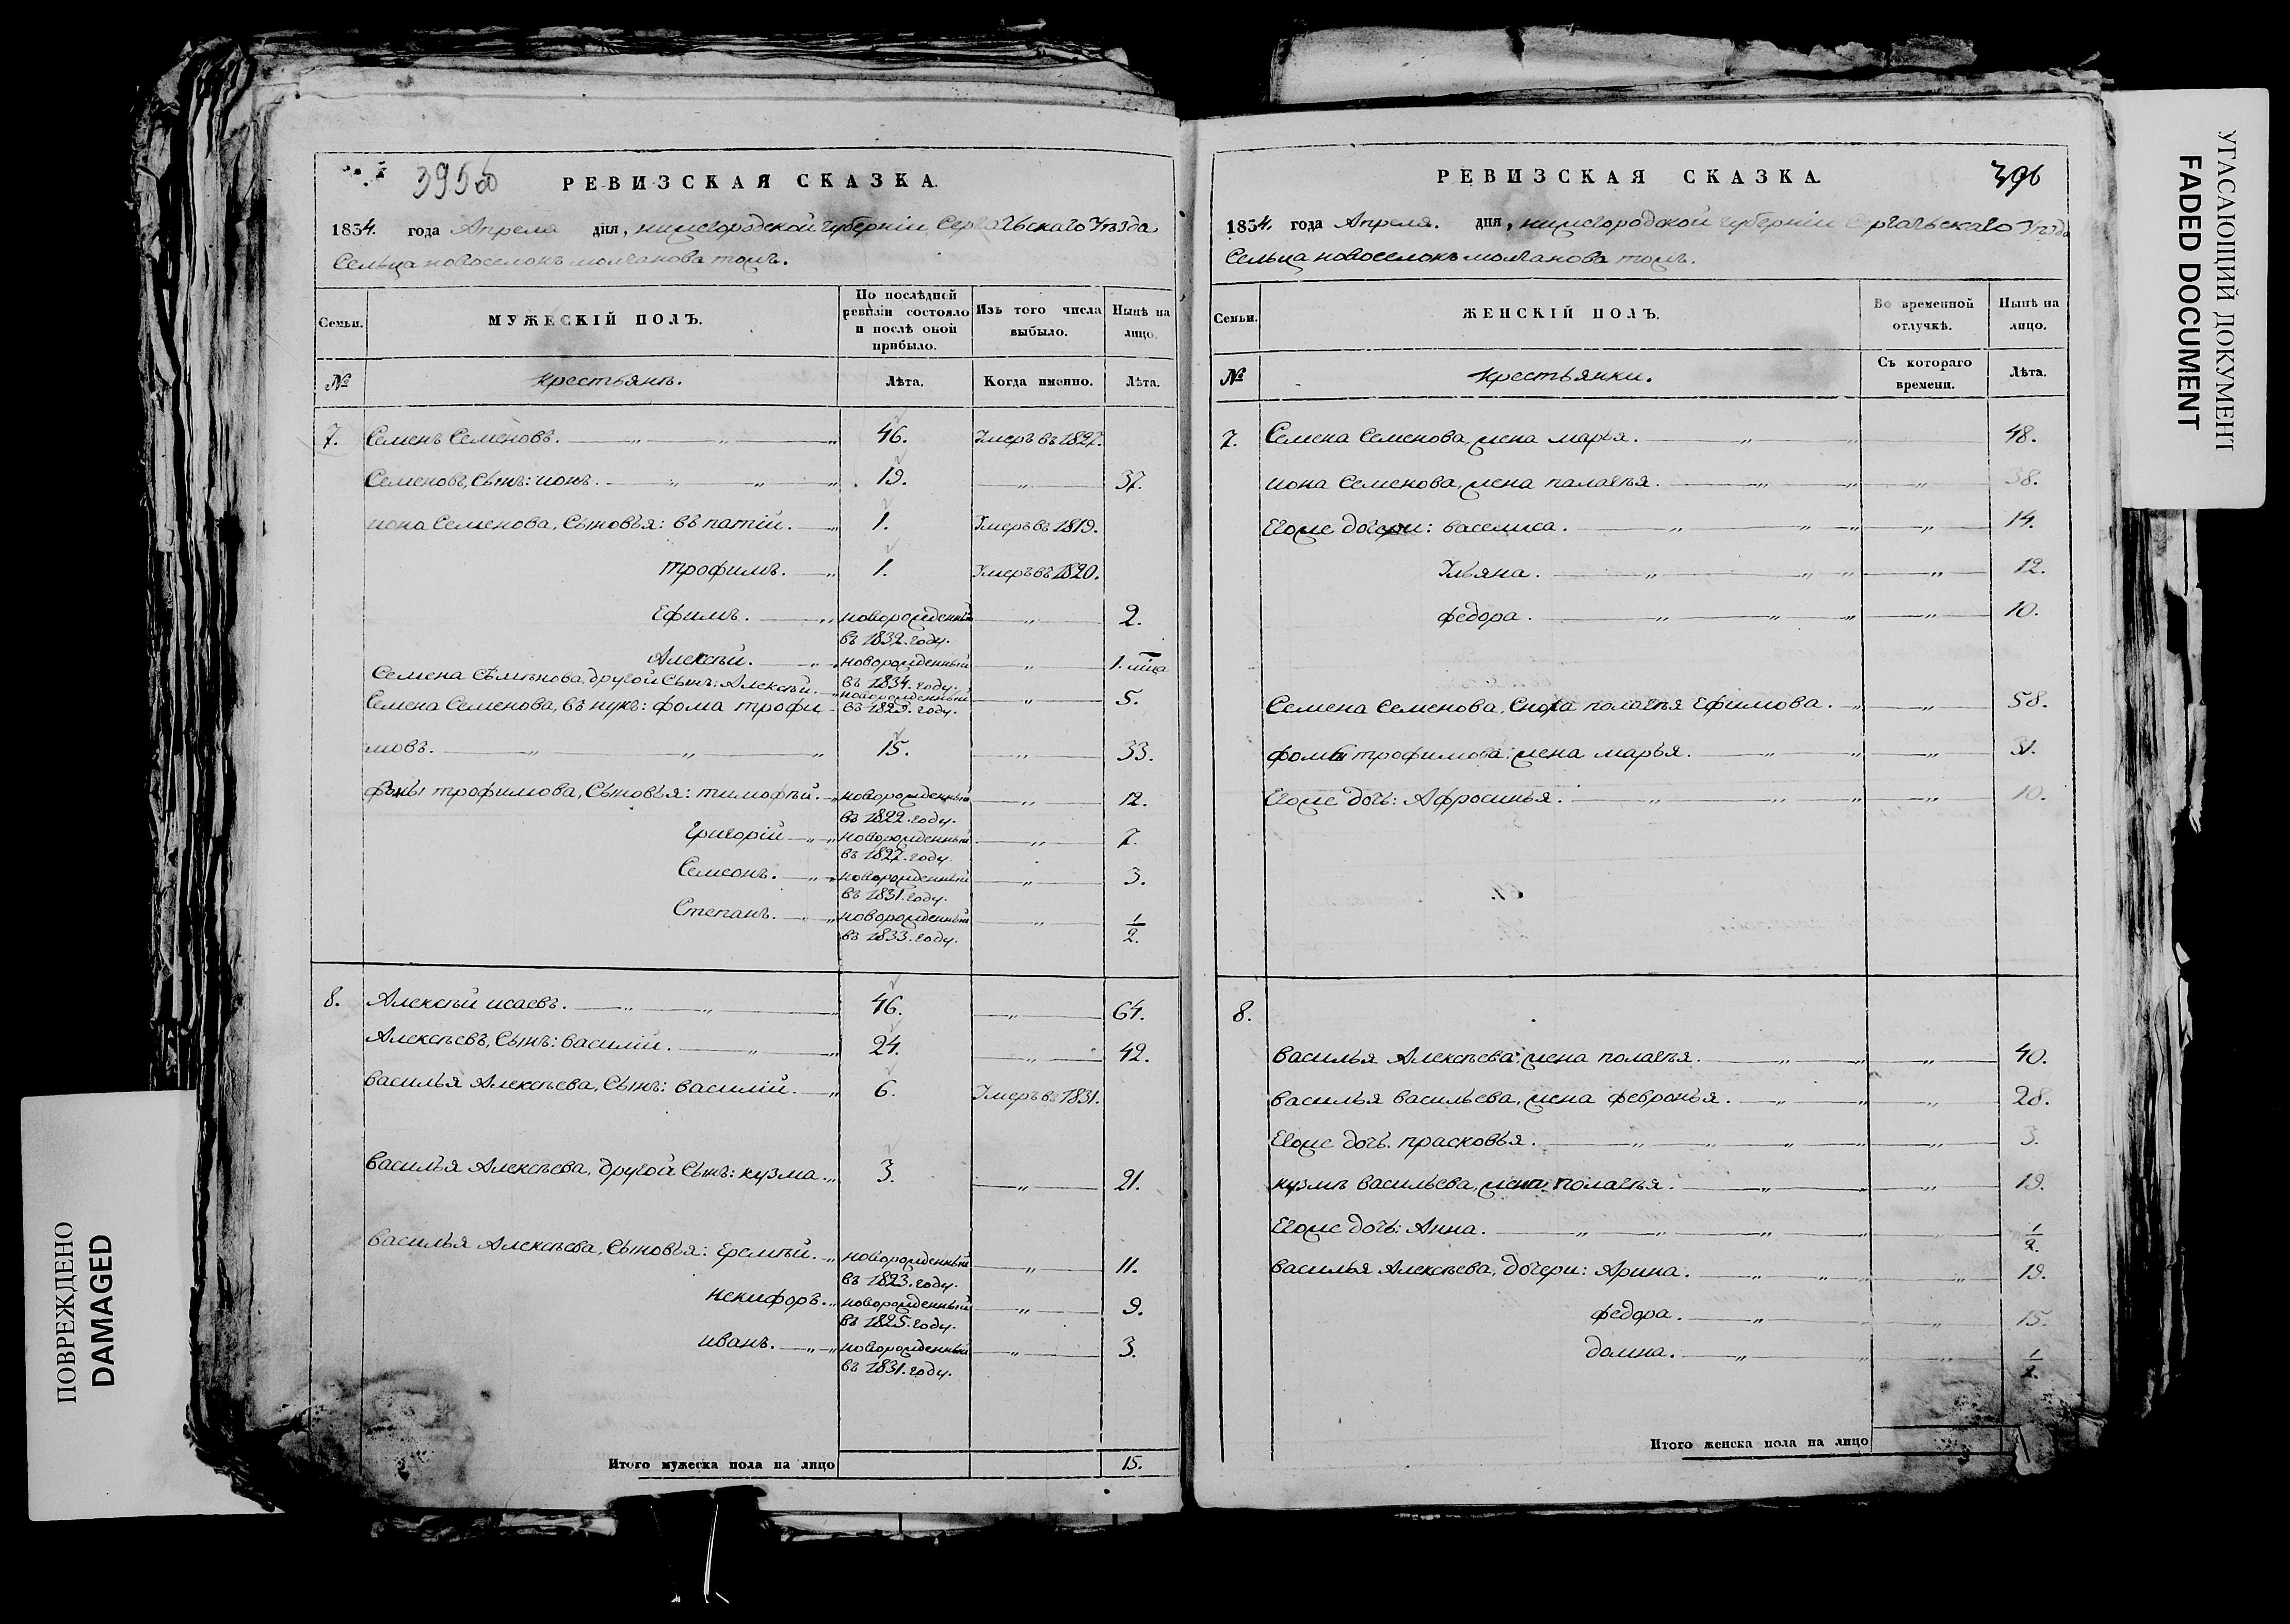 395 об
РЕВИЗСКАЯ СКАЗКА.
1834. года Апреля дня, нижегородской губернiи Сергачьскаго Уѣзда
Сельца новоселокъ молчанова тожъ.
Семьи.
МУЖЕСКIЙ ПОЛЪ.
По послѣдней ревизiи состояло и послѣ оной прибыло.
Изъ того числа выбыло.
Нынѣ на лицо.
№
Крестьянъ.
Лѣта.
Когда именно.
Лѣта.
7. Семенъ Семеновъ. 46. Умеръ въ 1827.
Семеновъ, Сынъ: ионъ. 19. 37.
иона Семенова, Сыновья: въпатiй. 1. Умеръ въ 1819.
трофимъ. 1. Умеръ въ 1820.
Ефимъ. новорожденный въ 1832. году. 2.
Алексѣй. новорожденный въ 1834. году. 1. мца
Семена Сѣменова, другой Сынъ: Алексѣй. новорожденный въ 1829. году. 5.
Семена Семенова, въ нукъ: фома трофи
мовъ. 15. 33.
фомы трофимова, Сыновья: тимофѣй. новорожденный въ 1822. году. 12.
Григорiй новорожденный въ 1827. году. 7.
Семеонъ. новорожденный въ 1831. году. 3.
Степанъ. новорожденный въ 1833. году. 1/2.
8. Алексѣй исаевъ. 46. 64.
Алексѣевъ, Сынъ: василiй. 24. 42.
василья Алексѣева, Сынъ: василiй. 6. Умеръ въ 1831.
василья Алексѣева, другой Сынъ: кузма. 3. 21.
василья Алексѣева, Сыновья: Еремѣй. новорожденный въ 1823. году. 11.
некифоръ. новорожденный въ 1825. году. 9.
иванъ. новорожденный въ 1831. году. 3.
Итого мужеска пола на лицо 15.
396
РЕВИЗСКАЯ СКАЗКА.
1834. года Апреля. дня, нижегородской губернiи Сергачьскаго Уѣзда
Сельца новоселокъ молчанова тожъ.
Семьи.
ЖЕНСКIЙ ПОЛЪ.
Во временной отлучкѣ.
Нынѣ на лицо.
№
Крестьянки.
Съ котораго времени.
Лѣта.
7. Семена Семенова, жена марья. 48.
иона Семенова, жена палагѣя. 38.
Егоже дочери: васелиса. 14.
Ульяна. 12.
федора. 10.
Семена Семенова, Сноха полагѣя Ефимова. 58.
фомы трофимова, жена марья. 31.
Егоже дочь: Афросинья. 10.
8.
василья Алексѣева: жена полагѣя. 40.
василья васильева, жена февронья. 28.
Егоже дочь. прасковья. 3.
кузмы васильева, жена полагѣя. 19.
Егоже дочь: Анна. 1/2.
василья Алексѣева, дочери: Арина. 19.
федора. 15.
домна. 1/2.
Итого женска пола на лицо
УГАСАЮЩИЙ ДОКУМЕНТ
FADED DOCUMENT
ПОВРЕЖДЕНО
DAMAGED